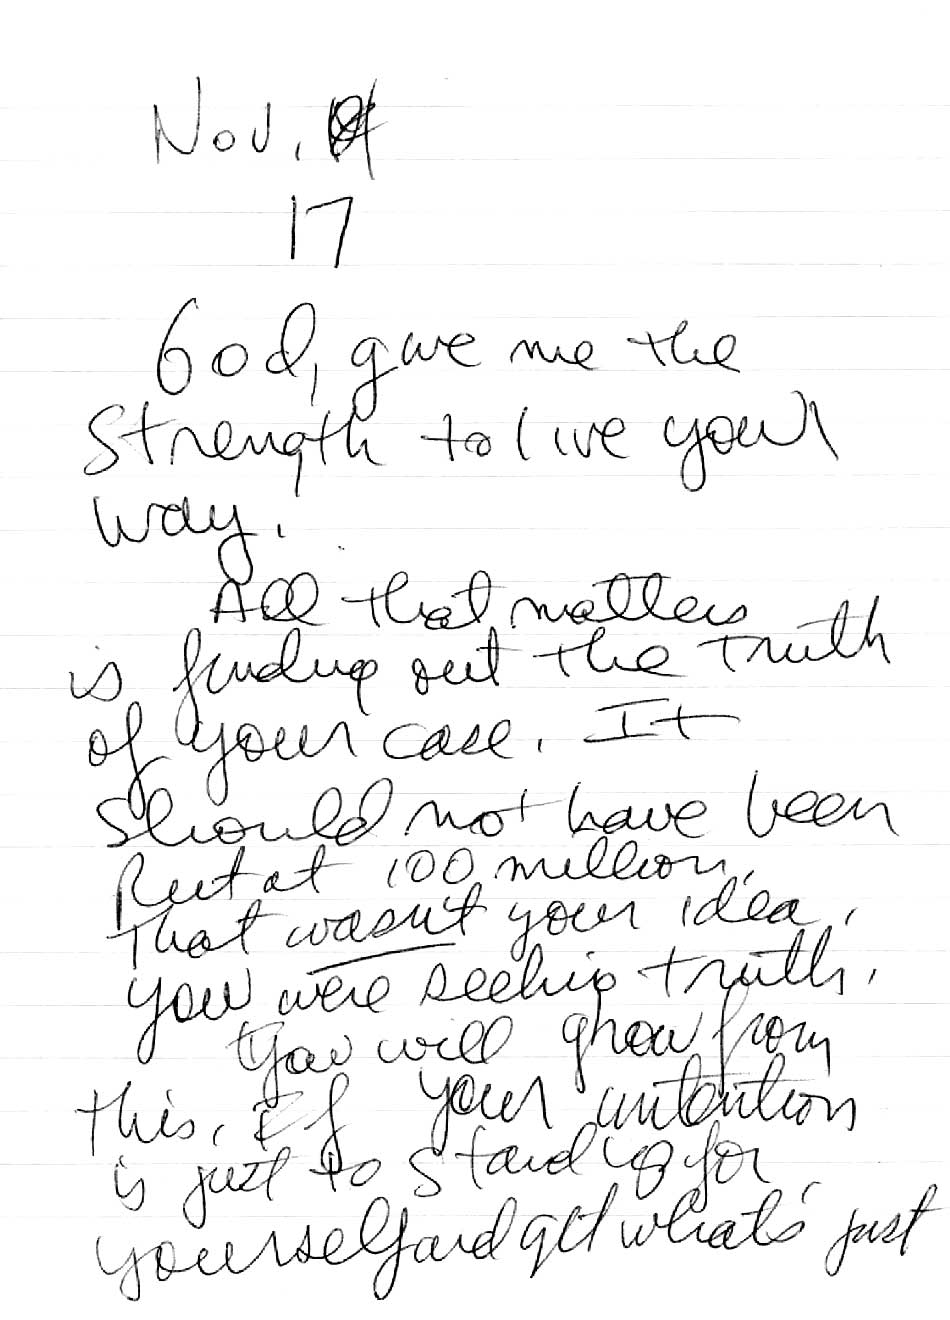 Nov.
17
God, give me the
Strength to live your
way.
All that matters
is finding out the truth
of your case. It
should not have been
put at 100 million.
That wasn't your idea,
you were seeking truth.
You will grow from
this, if your intention
is just to stand up for
yourself and get what's just